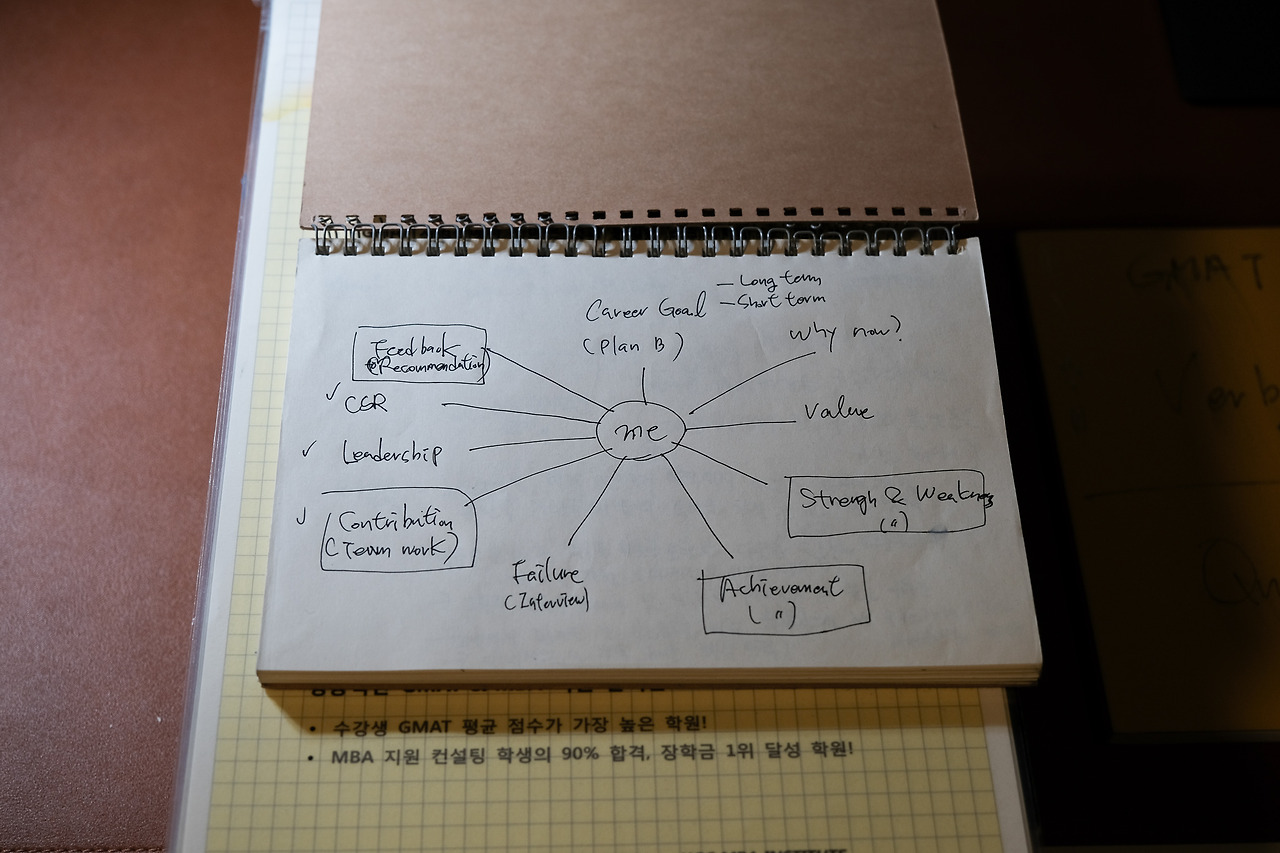 Career Goal
— Long term
— Short term
(Plan B)
Why now?
Feedback
(Recommendation)
✓ CSR
me
Value
✓ Leadership
Strengh & Weakness
(")
✓ Contribution
(Team work)
Failure
(Interview)
Achievement
(")
GMAT
Verb
Qu
• 수강생 GMAT 평균 점수가 가장 높은 학원!
• MBA 지원 컨설팅 학생의 90% 합격, 장학금 1위 달성 학원!